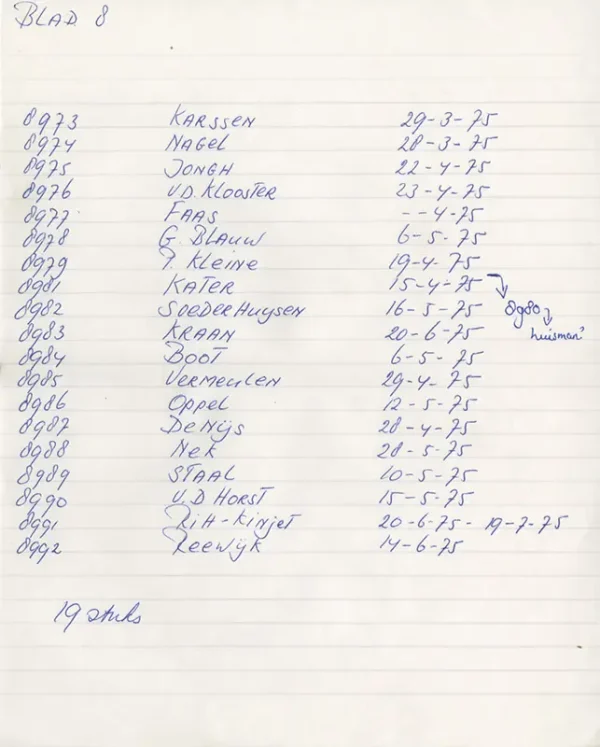 BLAD 8
8973 KARSSEN 29-3-75
8974 NAGEL 28-3-75
8975 JONGH 22-4-75
8976 V.D. KLOOSTER 23-4-75
8977 FAAS --4-75
8978 G. BLAUW 6-5-75
8979 P. KLEINE 19-4-75
8981 KATER 15-4-75
8982 SOEDERHUYSEN 16-5-75 8980
8983 KRAAN 20-6-75 huisman?
8984 BOOT 6-5-75
8985 VERMEULEN 29-4-75
8986 OPPEL 12-5-75
8987 DE NIJS 28-4-75
8988 NEK 28-5-75
8989 STAAL 10-5-75
8990 V.D HORST 15-5-75
8991 20-6-75 - 19-7-75
8992 REEWIJK 14-6-75
19 stuks